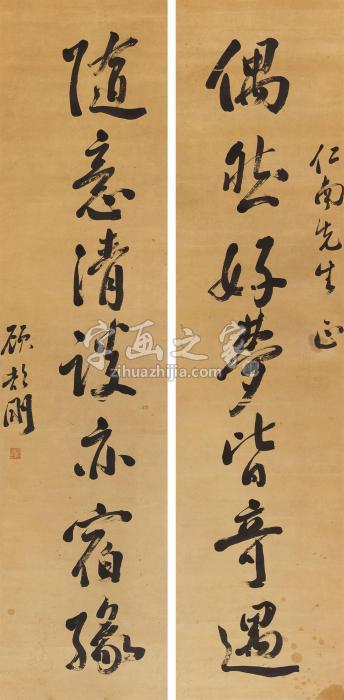 仁甫先生正
偶然好夢皆奇遇
隨意清談亦宿緣
顧頡剛
字画之家
zihuazhijia.com